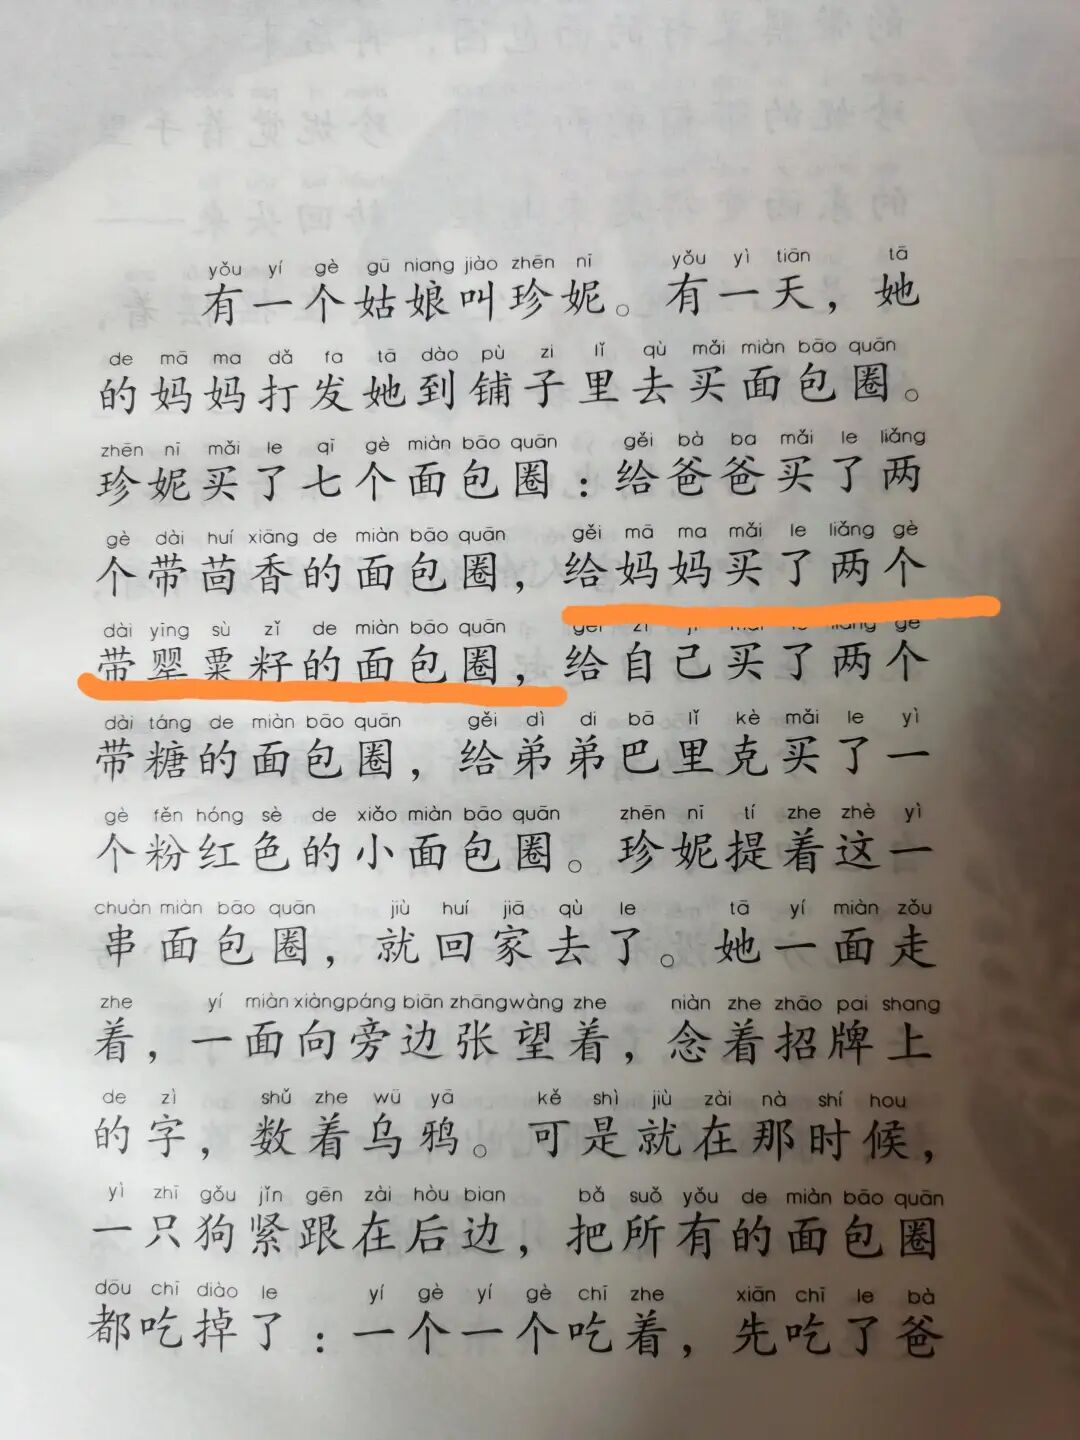 yǒu yí gè gū niang jiào zhēn nī yǒu yì tiān tā
有一个姑娘叫珍妮。有一天，她
de mā ma dǎ fa tā dào pù zi lǐ qù mǎi miàn bāo quān
的妈妈打发她到铺子里去买面包圈。
zhēn nī mǎi le qī gè miàn bāo quān gěi bà ba mǎi le liǎng
珍妮买了七个面包圈：给爸爸买了两
gè dài huí xiāng de miàn bāo quān gěi mā ma mǎi le liǎng gè
个带茴香的面包圈，给妈妈买了两个
dài yīng sù zǐ de miàn bāo quān gěi zì jǐ mǎi le liǎng gè
带罂粟籽的面包圈，给自己买了两个
dài táng de miàn bāo quān gěi dì di bā lǐ kè mǎi le yí
带糖的面包圈，给弟弟巴里克买了一
gè fěn hóng sè de xiǎo miàn bāo quān zhēn nī tí zhe zhè yì
个粉红色的小面包圈。珍妮提着这一
chuàn miàn bāo quān jiù huí jiā qù le tā yí miàn zǒu
串面包圈，就回家去了。她一面走
zhe yí miàn xiàng páng biān zhāng wàng zhe niàn zhe zhāo pai shang
着，一面向旁边张望着，念着招牌上
de zì shǔ zhe wū yā kě shì jiù zài nà shí hou
的字，数着乌鸦。可是就在那时候，
yì zhī gǒu jǐn gēn zài hòu bian bǎ suǒ yǒu de miàn bāo quān
一只狗紧跟在后边，把所有的面包圈
dōu chī diào le yí gè yí gè chī zhe xiān chī le bà
都吃掉了：一个一个吃着，先吃了爸